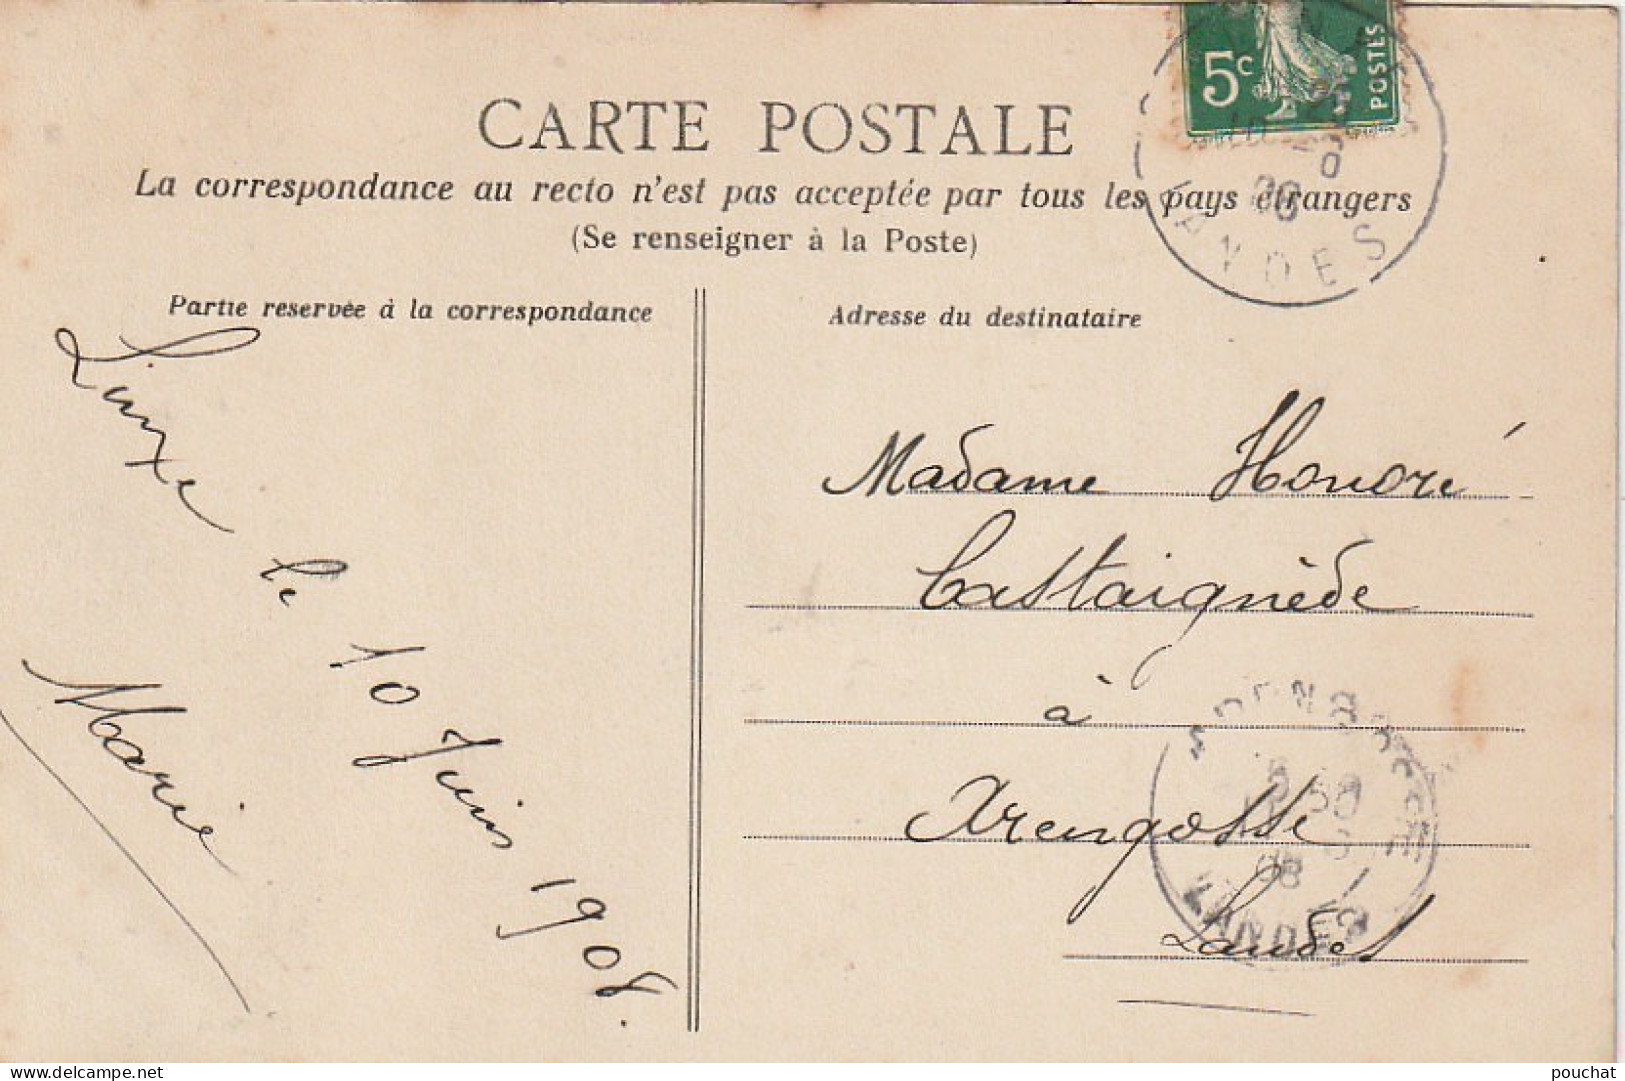 5c
POSTES
CARTE POSTALE
La correspondance au recto n'est pas acceptée par tous les pays étrangers
(Se renseigner à la Poste)
LANDES
08
Partie reservée à la correspondance
Adresse du destinataire
Linxe le 10 Juin 1908.
Marie
Madame Honoré
Castaignède
à
Arengosse
Landes
08
LANDES
Delcampe.net
pouchat